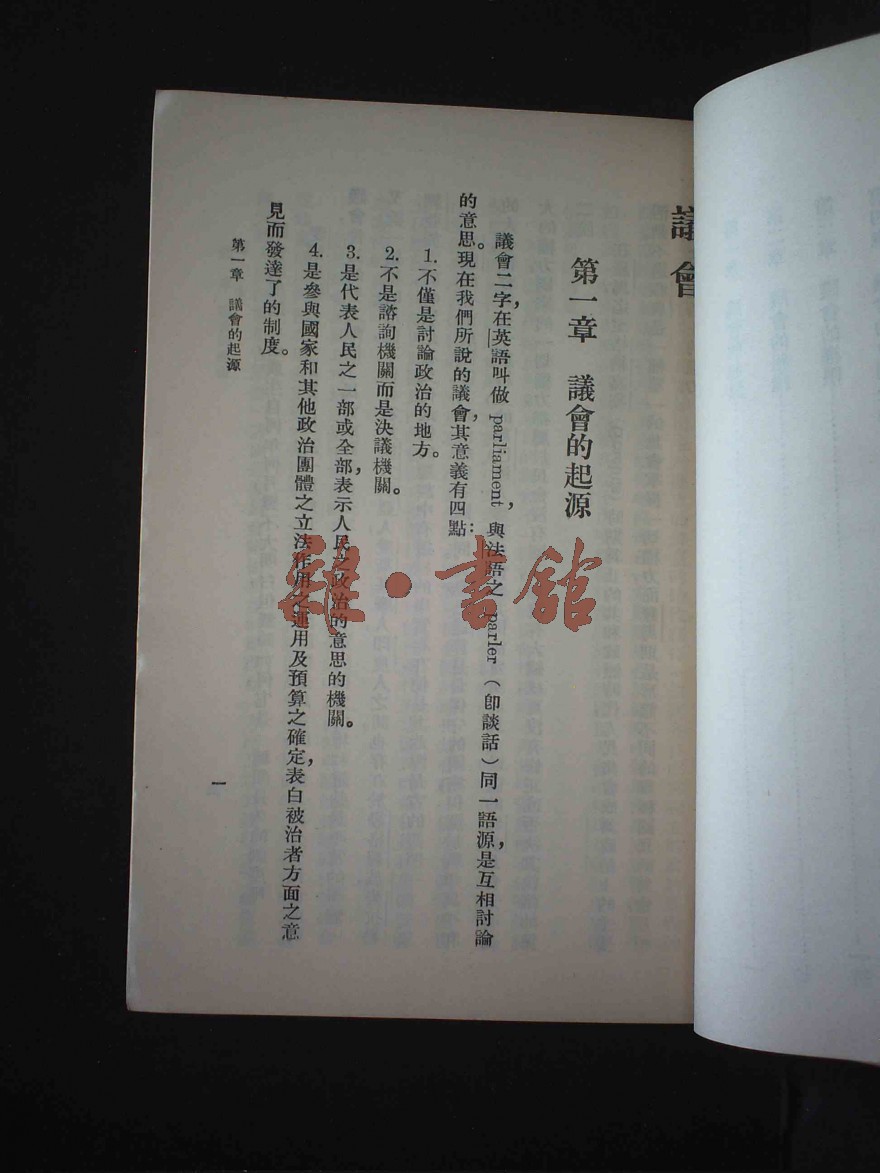 議會
第一章　議會的起源
議會二字，在英語叫做 parliament，與法語之 parler（卽談話）同一語源，是互相討論
的意思。現在我們所說的議會，其意義有四點：
1. 不僅是討論政治的地方。
2. 不是諮詢機關而是決議機關。
3. 是代表人民之一部或全部，表示人民之政治的意思的機關。
4. 是參與國家和其他政治團體之立法作用之運用及預算之確定，表白被治者方面之意
見而發達了的制度。
第一章　議會的起源
一
雜·書館